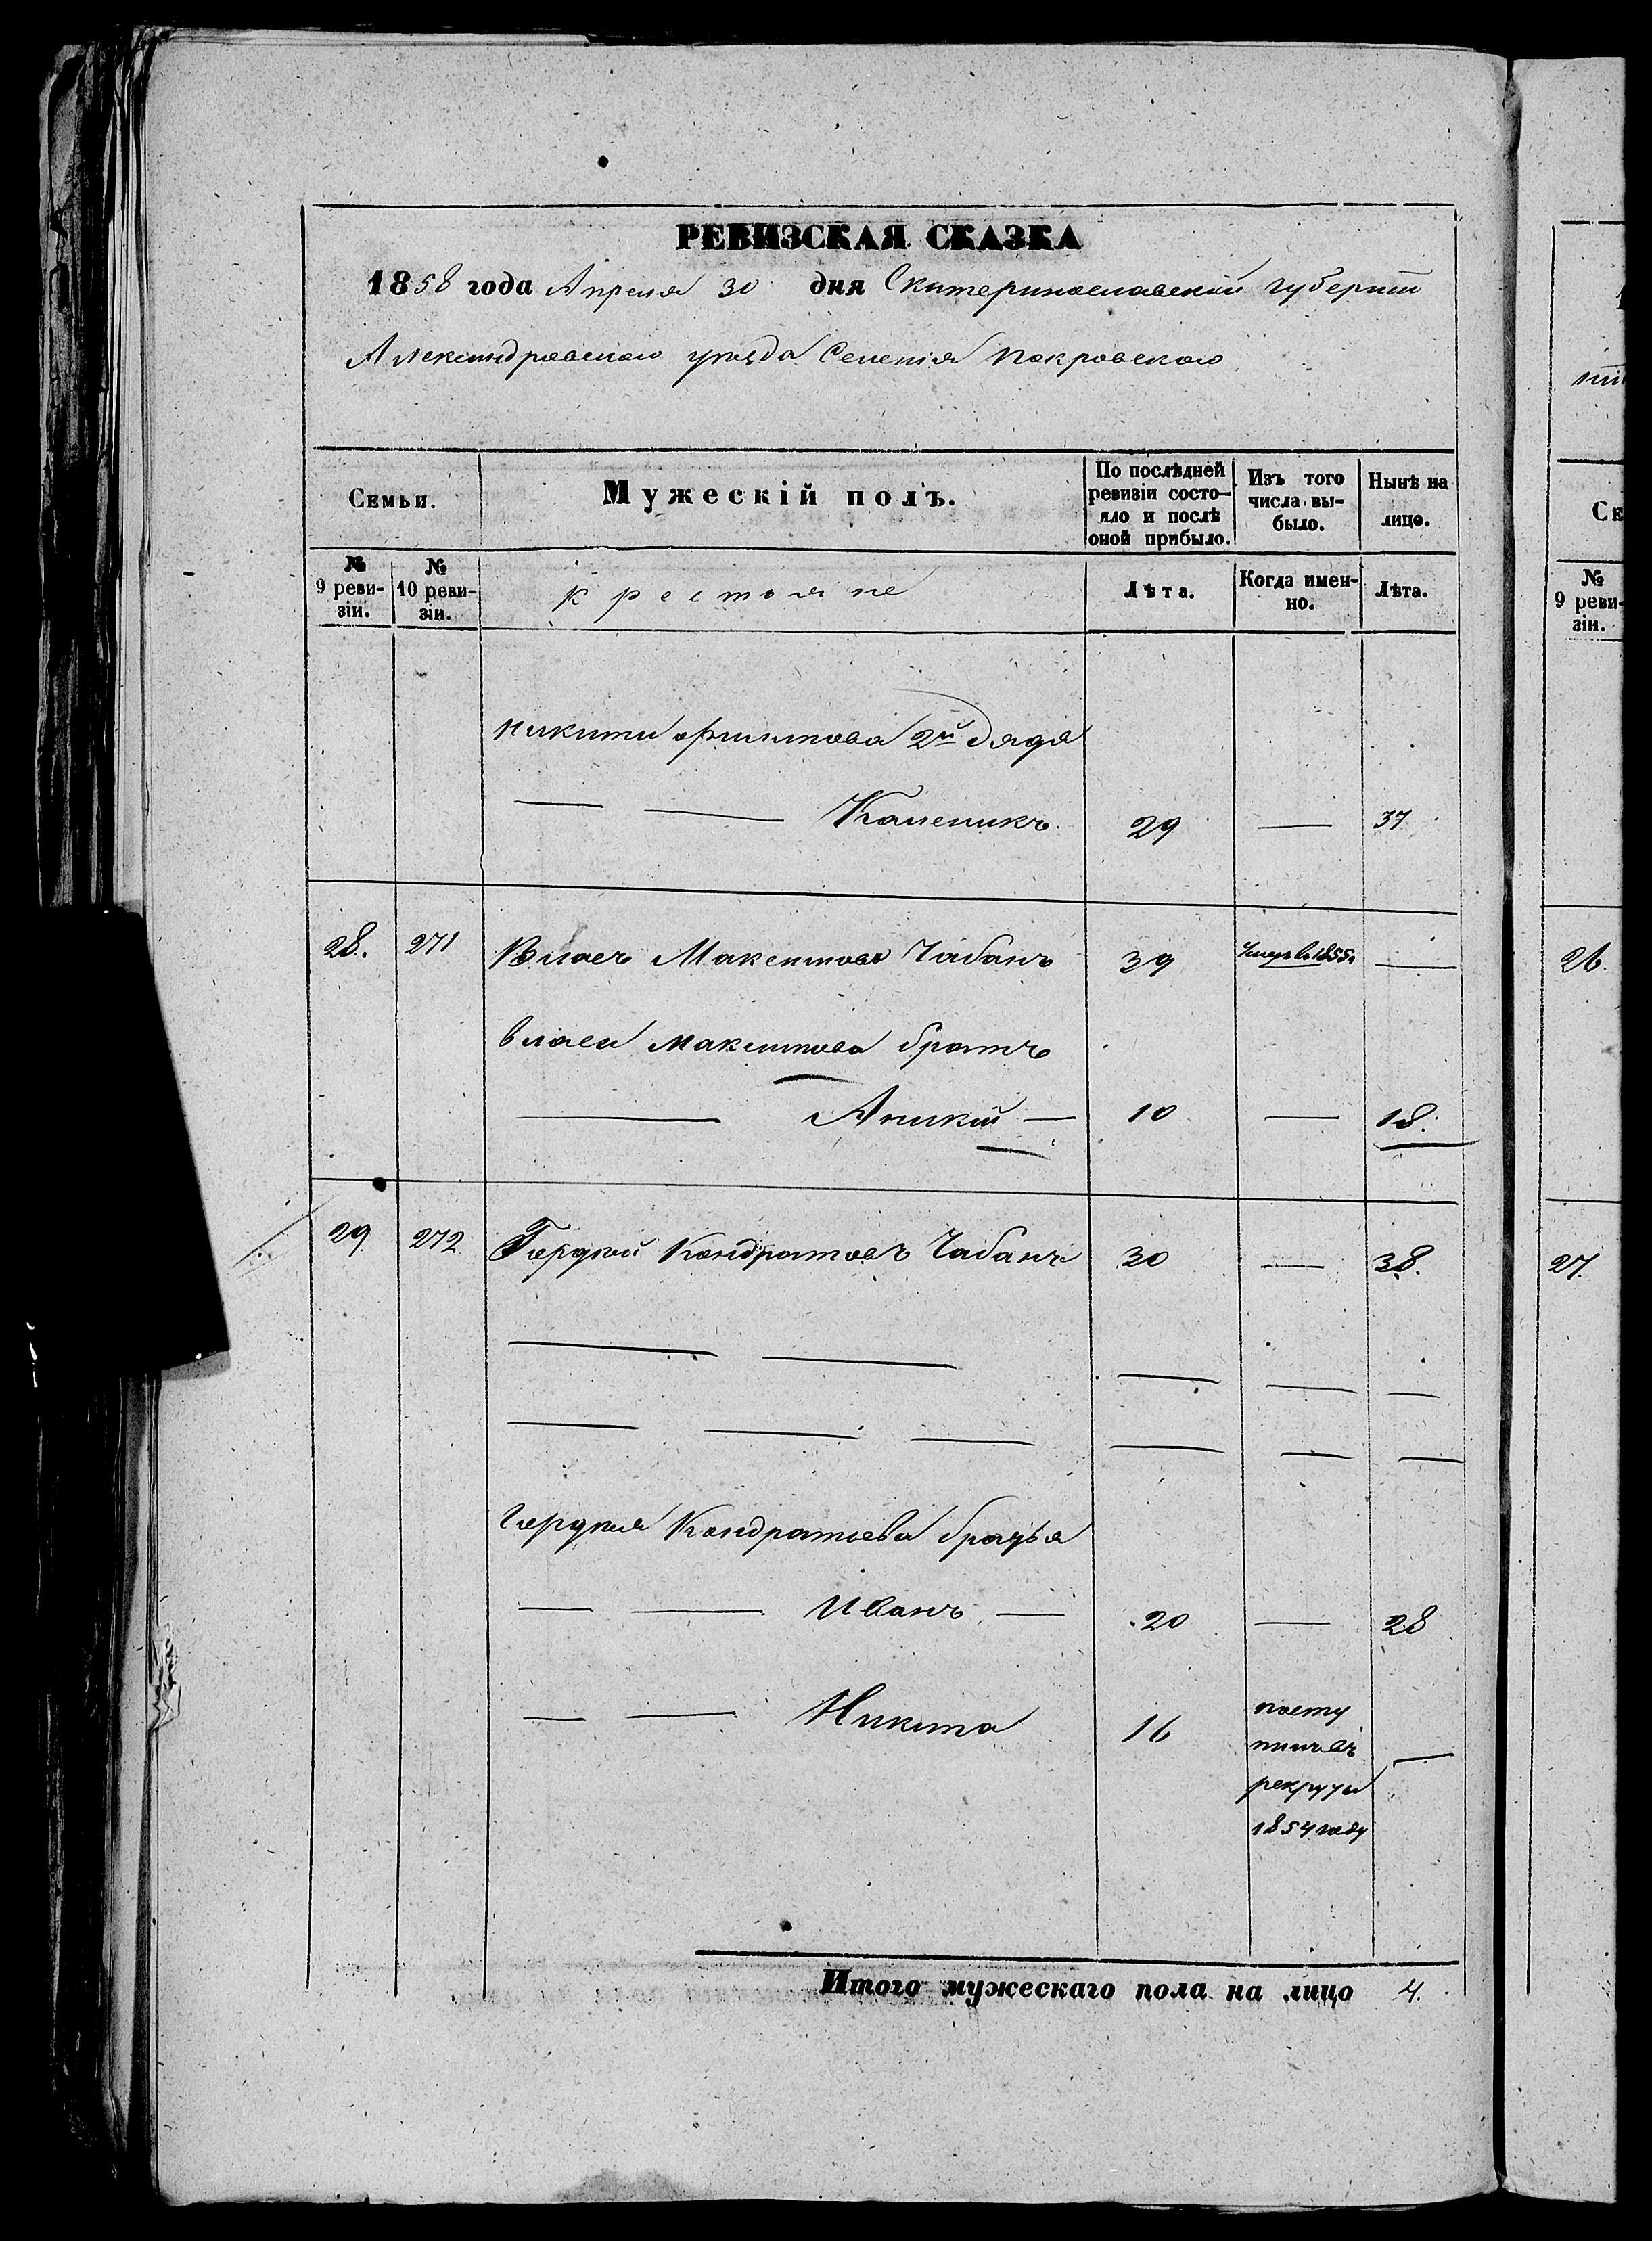 РЕВИЗСКАЯ СКАЗКА
1858 года Апреля 30 дня Екатеринославской губернии
Александровскаго уезда Селенія Покровскаго
Семьи.
Мужескій полъ.
По послѣдней ревизіи состо-
яло и послѣ
оной прибыло.
Изъ того
числа вы-
было.
Нынѣ на
лицо.
№
9 реви-
зіи.
№
10 реви-
зіи.
крестьяне
Лѣта.
Когда имен-
но.
Лѣта.
Никиты 2й дядя
— — Каленикъ 29 — 37
28. 271 Власъ Максимовъ Чабанъ 39 Умеръ в 1855г —
Власа Максимова братъ
— Аникій — 10 — 18.
29 272 Гордей Кондратовъ Чабанъ 30 — 38.
— — — — —
— — — — — —
Гордея Кондратьева братья
— — Иванъ — 20 — 28
— — Никита 16 посту
пилъ въ
рекруты
1854 году —
Итого мужескаго пола на лицо 4.
Се
№
9 реви-
зіи.
26.
27.